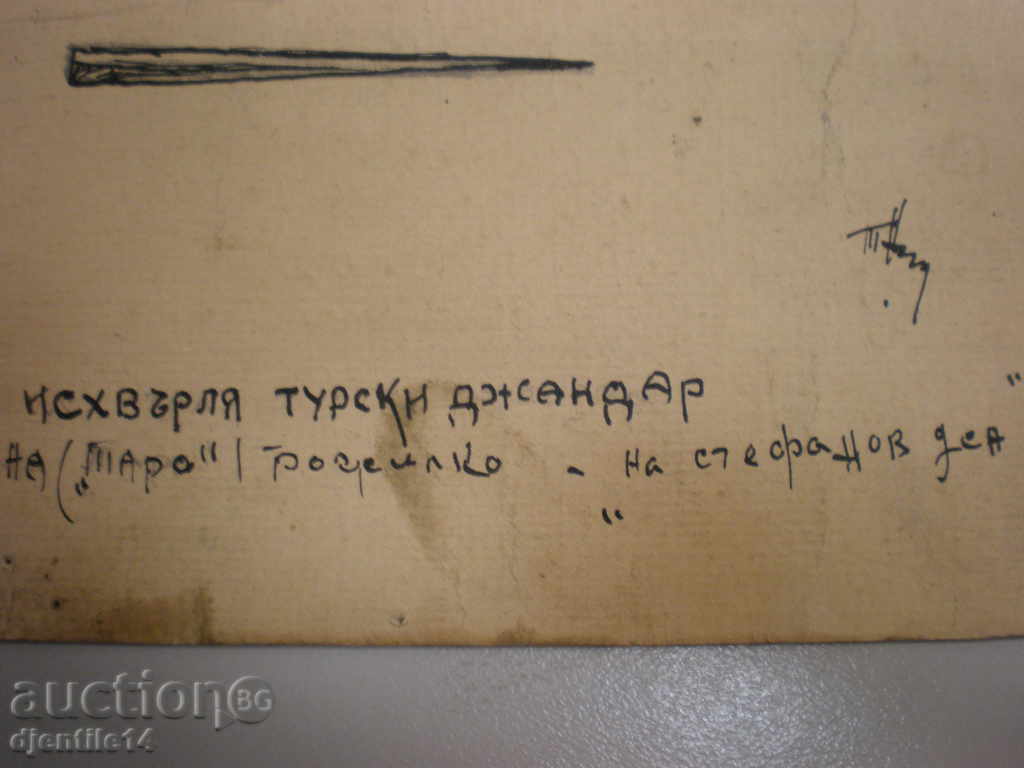 исхвърля турски джандар "
на („Таро“)
- на стефанов ден
"
auction BG
djentile14